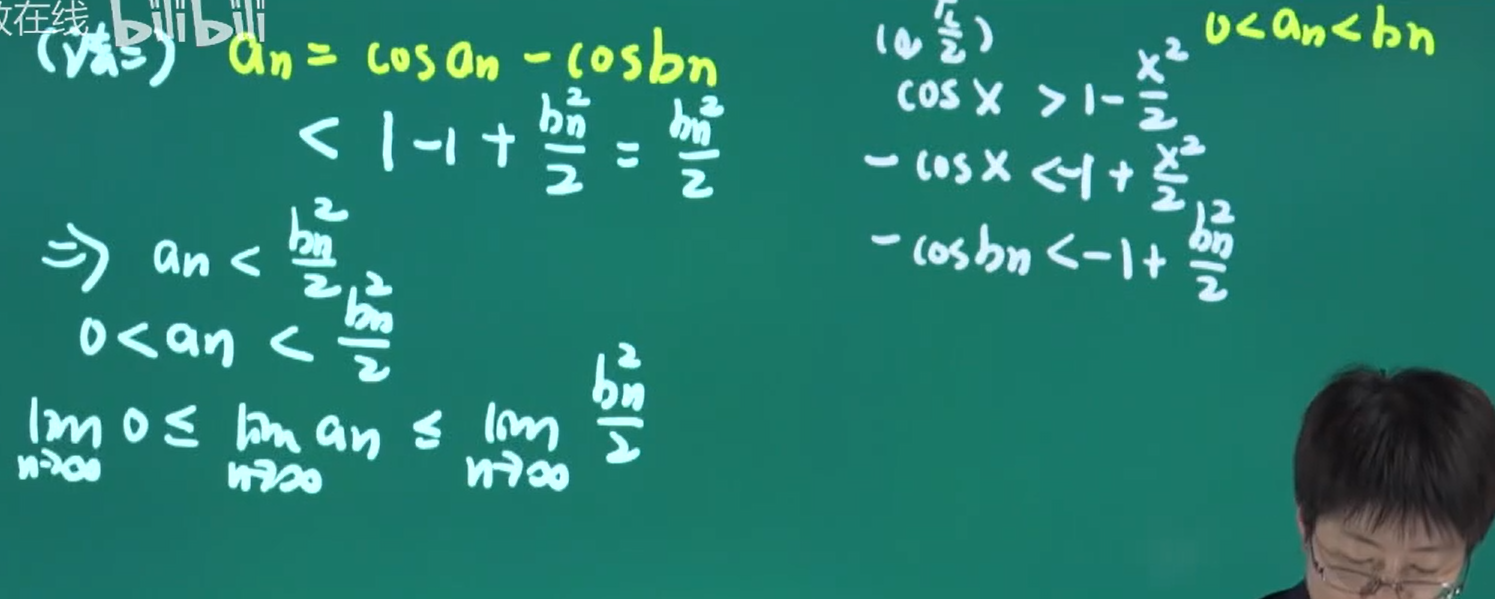 效在线 bilibili
(法二) an = cos an - cos bn
< 1-1 + bn²/2 = bn²/2
⇒ an < bn²/2
0 < an < bn²/2
lim n→∞ 0 ≤ lim n→∞ an ≤ lim n→∞ bn²/2
(0 π/2) 0<an<bn
cos x > 1 - x²/2
- cos x < -1 + x²/2
- cos bn < -1 + bn²/2